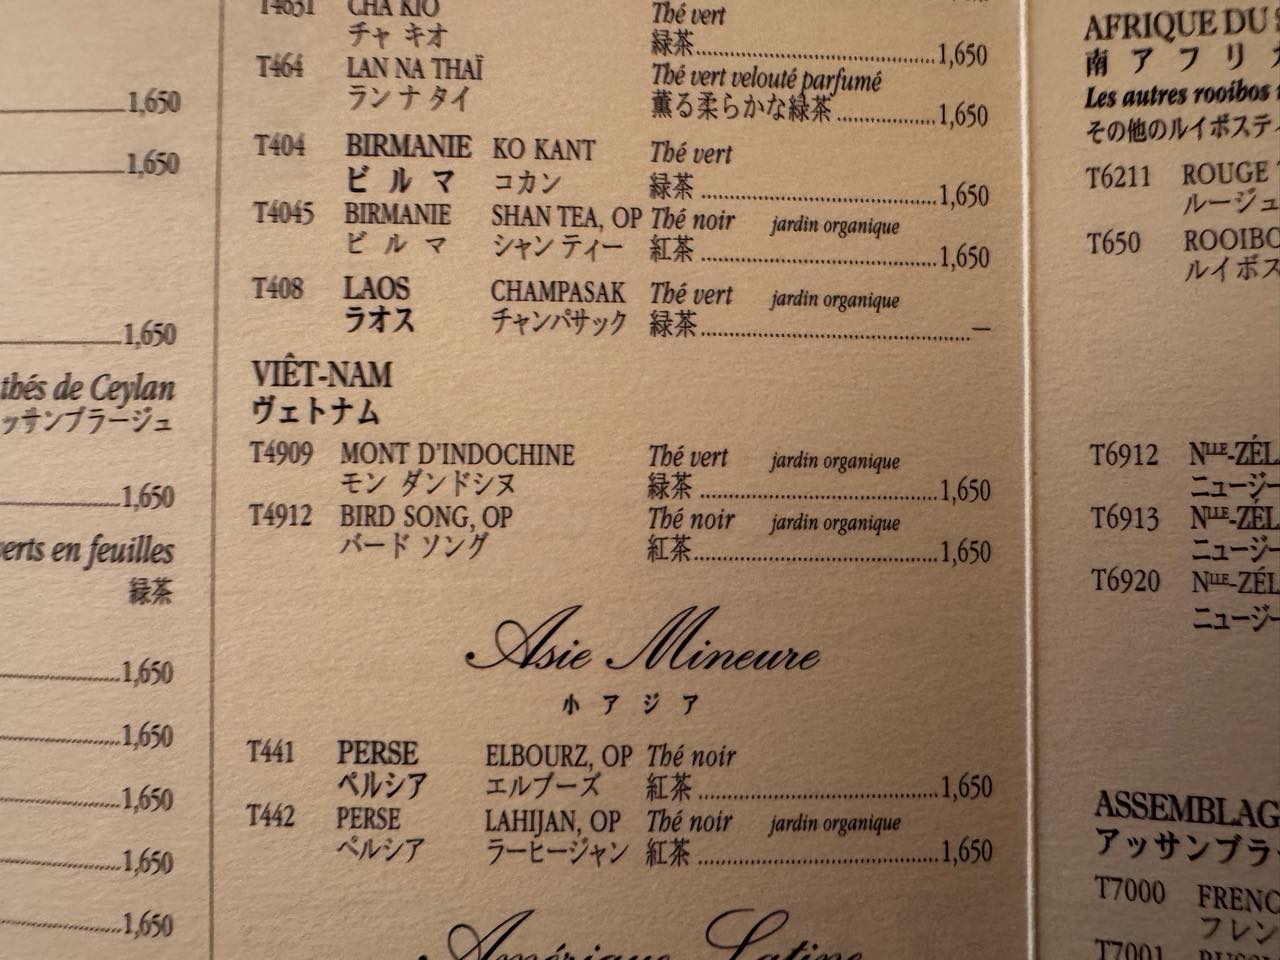 1,650
1,650
1,650
thés de Ceylan
ッサンブラージュ
1,650
verts en feuilles
緑茶
1,650
1,650
1,650
1,650
1,650
T4631 CHA KIO Thé vert
チャ キオ 緑茶 1,650
T464 LAN NA THAÏ Thé vert velouté parfumé
ラン ナ タイ 薫る柔らかな緑茶 1,650
T404 BIRMANIE KO KANT Thé vert
ビルマ コカン 緑茶 1,650
T4045 BIRMANIE SHAN TEA, OP Thé noir jardin organique
ビルマ シャン ティー 紅茶 1,650
T408 LAOS CHAMPASAK Thé vert jardin organique
ラオス チャンパサック 緑茶 –
VIÊT-NAM
ヴェトナム
T4909 MONT D'INDOCHINE Thé vert jardin organique
モン ダンドシヌ 緑茶 1,650
T4912 BIRD SONG, OP Thé noir jardin organique
バード ソング 紅茶 1,650
Asie Mineure
小アジア
T441 PERSE ELBOURZ, OP Thé noir
ペルシア エルブーズ 紅茶 1,650
T442 PERSE LAHIJAN, OP Thé noir jardin organique
ペルシア ラーヒージャン 紅茶 1,650
Amérique Latine
AFRIQUE DU
南アフリカ
Les autres rooibos
その他のルイボスティ
T6211 ROUGE
ルージュ
T650 ROOIBO
ルイボス
T6912 NLLE-ZÉL
ニュージー
T6913 NLLE-ZÉL
ニュージー
T6920 NLLE-ZÉL
ニュージー
ASSEMBLAG
アッサンブラ
T7000 FRENC
フレン
T7001